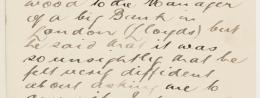 wood to die Manager
of a big Bank in
London (Lloyds) but
he said that it was
so unsightly that he
felt very diffident
about asking me to